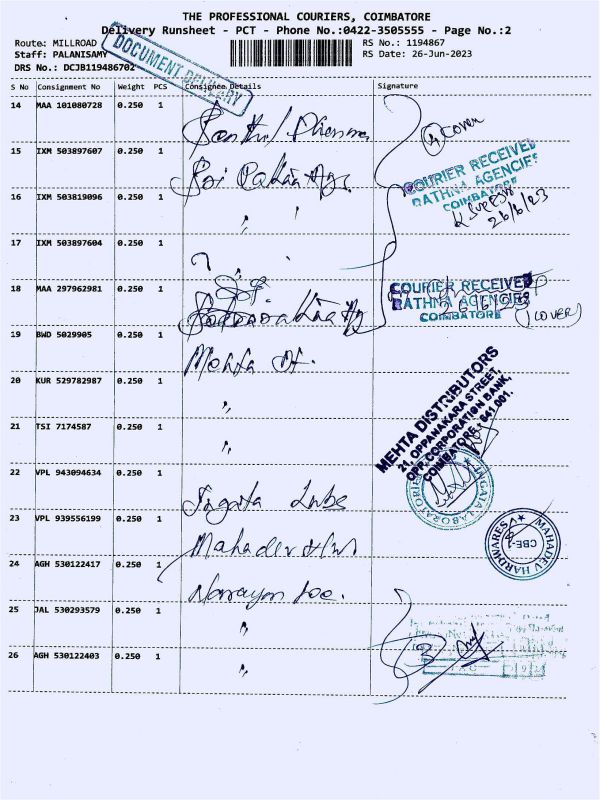 THE PROFESSIONAL COURIERS, COIMBATORE
Delivery Runsheet - PCT - Phone No.:0422-3505555 - Page No.:2
Route: MILLROAD
RS No.: 1194867
Staff: PALANISAMY
RS Date: 26-Jun-2023
DRS No.: DCJB119486702
DOCUMENT DELIVERY
S No Consignment No Weight PCS Consignee Details Signature
14 MAA 101080728 0.250 1
4 Cover
15 IXM 503897607 0.250 1
COURIER RECEIVED
RATHNA AGENCIES
COIMBATORE
26/6/23
16 IXM 503819096 0.250 1 "
17 IXM 503897604 0.250 1
18 MAA 297962981 0.250 1
COURIER RECEIVED
RATHNA AGENCIES
COIMBATORE
(1 COVER)
19 BWD 5029905 0.250 1 Mehta Dt.
20 KUR 529782987 0.250 1 "
MEHTA DISTRIBUTORS
21, OPPANAKARA STREET,
OPP. CORPORATION BANK,
COIMBATORE - 641 001.
21 TSI 7174587 0.250 1 "
22 VPL 943094634 0.250 1
23 VPL 939556199 0.250 1 Mahadev
MAHADEV HARDWARES
CBE-1
24 AGH 530122417 0.250 1 Narayan
25 JAL 530293579 0.250 1 "
26 AGH 530122403 0.250 1 "